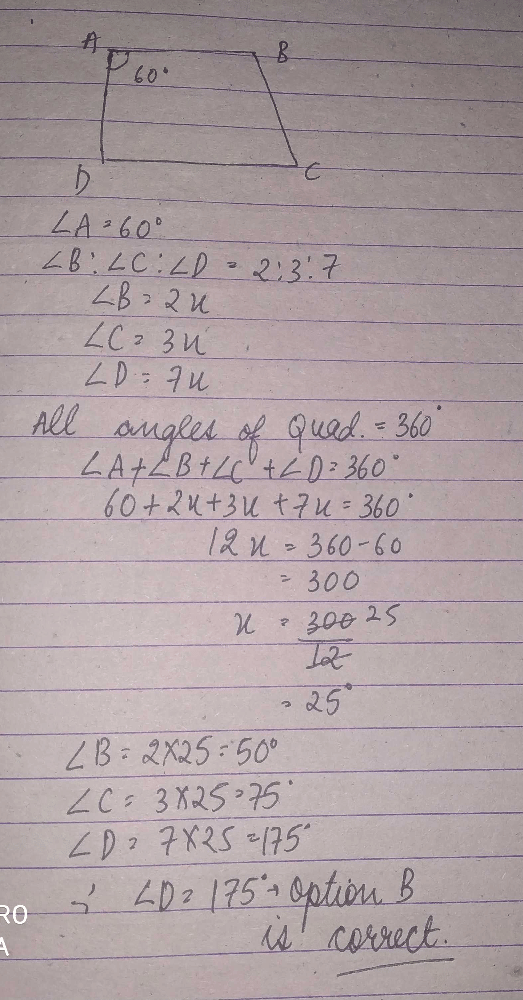 A B
60°
D C
∠A = 60°
∠B : ∠C : ∠D = 2:3:7
∠B = 2x
∠C = 3x
∠D = 7x
All angles of Quad. = 360°
∠A+∠B+∠C+∠D=360°
60+2x+3x+7x=360°
12x = 360-60
= 300
x = 300 25
12
= 25°
∠B = 2×25 = 50°
∠C = 3×25 = 75°
∠D = 7×25 = 175°
∴ ∠D = 175° → Option B
is correct.
RO
A